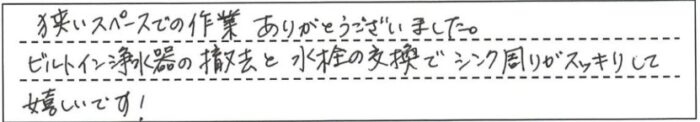 狭いスペースでの作業 ありがとうございました。
ビルトイン浄水器の撤去と水栓の交換でシンク周りがスッキリして
嬉しいです!